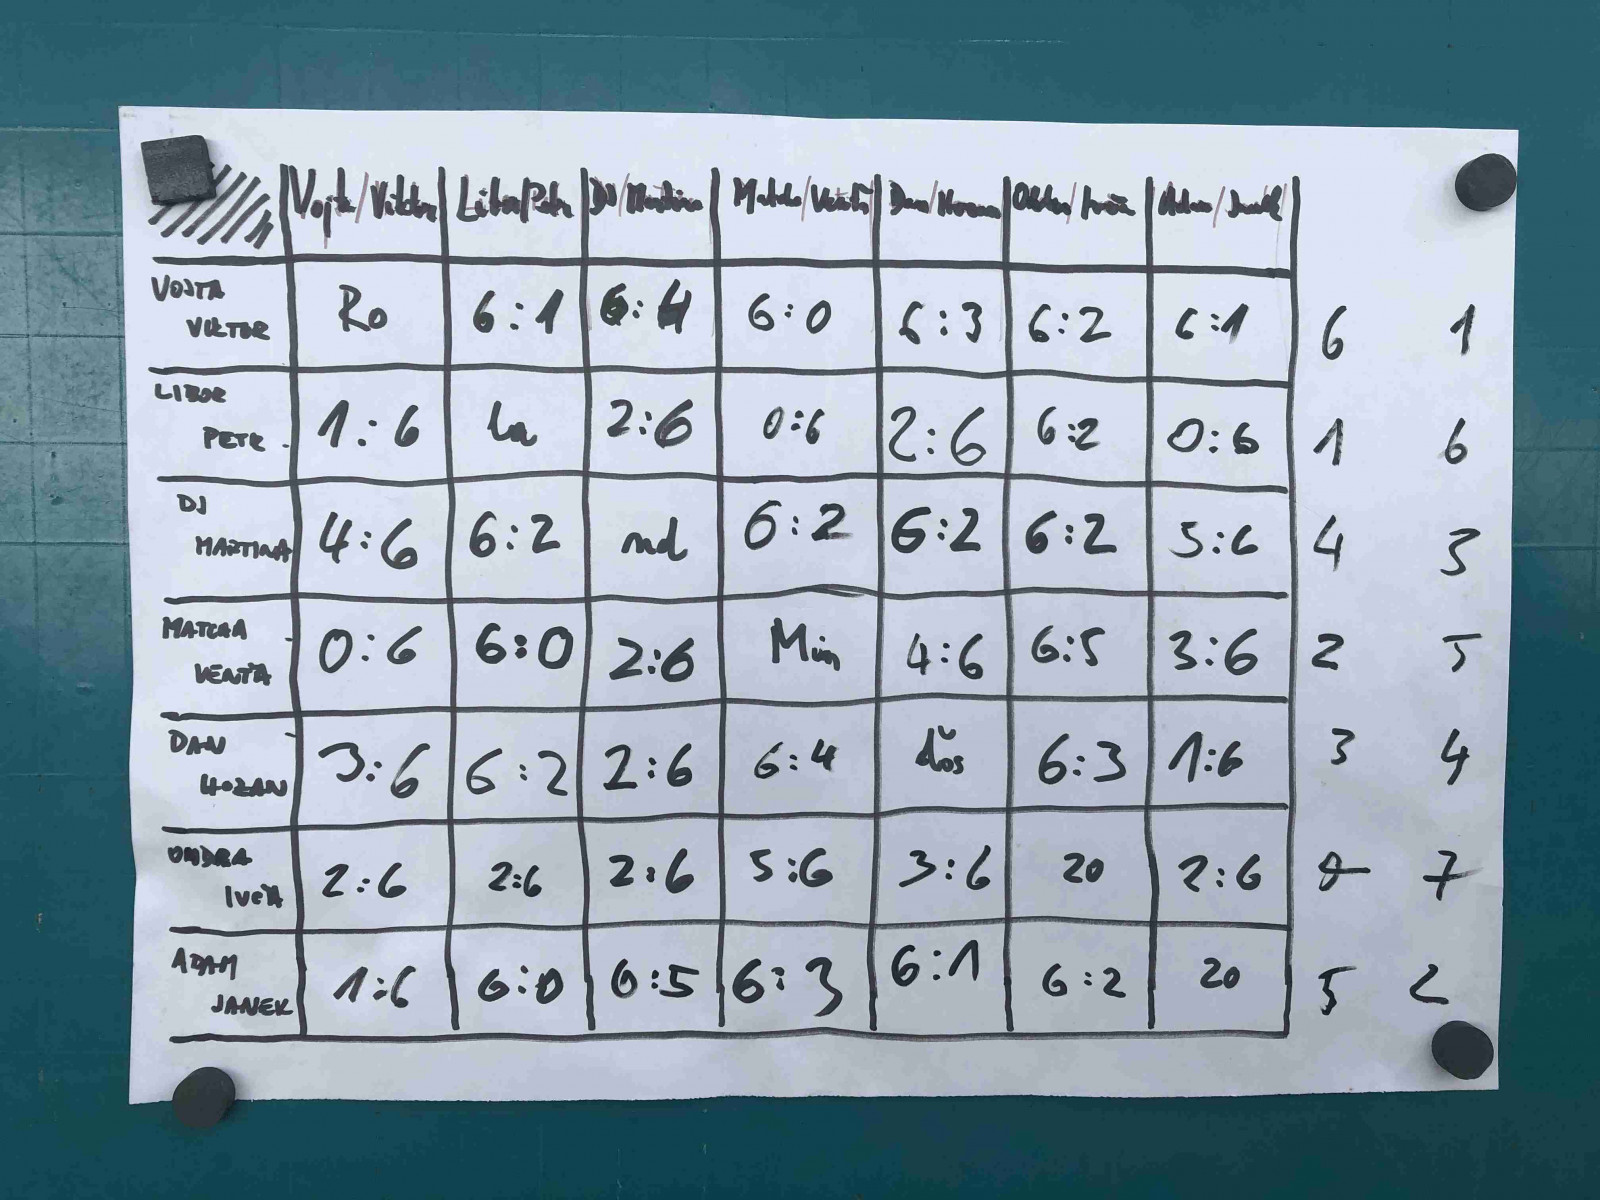 Vojta/Viktor Libor/Petr DJ/Martina Matcha/Venťa Dan/Honzan Ondra/Iveta Adam/Janek
VOJTA
VIKTOR
Ro 6:1 6:4 6:0 6:3 6:2 6:1 6 1
LIBOR
PETR
1:6 la 2:6 0:6 2:6 6:2 0:6 1 6
DJ
MARTINA
4:6 6:2 nd 6:2 6:2 6:2 5:6 4 3
MATCHA
VENŤA
0:6 6:0 2:6 Mim 4:6 6:5 3:6 2 5
DAN
HOZAN
3:6 6:2 2:6 6:4 ďos 6:3 1:6 3 4
ONDRA
IVETA
2:6 2:6 2:6 5:6 3:6 20 2:6 0 7
ADAM
JANEK
1:6 6:0 6:5 6:3 6:1 6:2 20 5 2